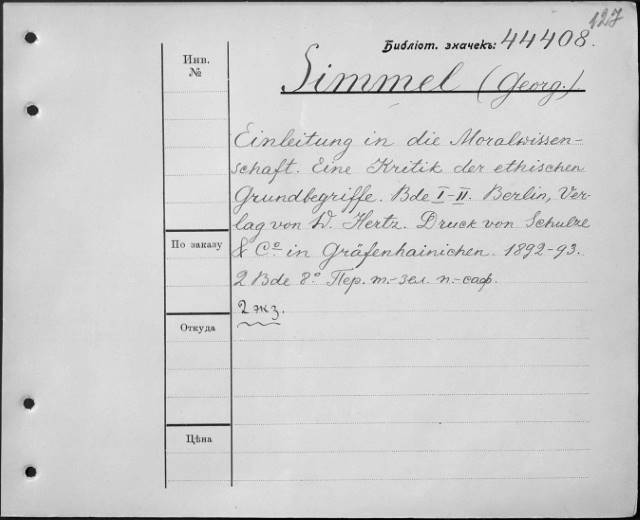 127
Библіот. значекъ: 44408.
Инв.
№
Simmel (Georg.)
Einleitung in die Moralwissen-
schaft. Eine Kritik der ethischen
Grundbegriffe. Bde I-II. Berlin, Ver-
lag von W. Hertz. Druck von Schulze
& Cº in Gräfenhainichen. 1892-93.
По заказу
2 Bde 8º Пер. т.-зел. п.-саф.
2 экз.
Откуда
Цѣна